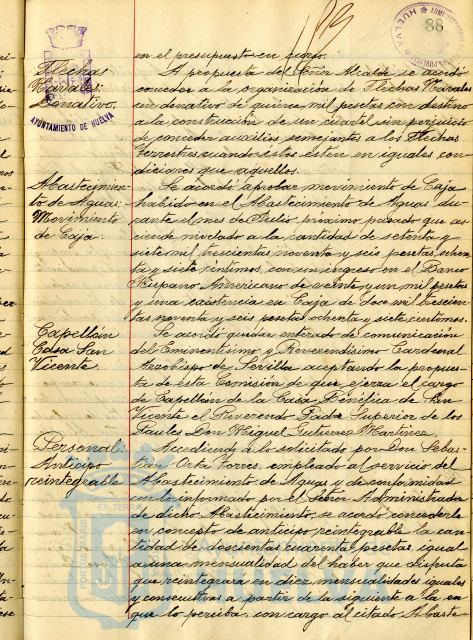 88
AYUNTAMIENTO DE HUELVA
en el presupuesto en curso.
Flechas
Navales
Donativo.
A propuesta del Señor Alcalde se acordó
conceder a la organización de Flechas Navales
un donativo de quince mil pesetas con destino
a la construcción de un cuartel sin perjuicio
de conceder auxilios semejantes a los Flechas
Terrestres cuando éstos estén en iguales con
diciones que aquellos.
Abastecimien
to de Aguas.
Movimiento
de Caja.
Se acordó aprobar movimiento de Caja
habido en el Abastecimiento de Aguas du
rante el mes de Julio próximo pasado que as
ciende nivelado a la cantidad de setenta y
siete mil trescientas noventa y seis pesetas ochen
ta y siete céntimos, con un ingreso en el Banco
Hispano Americano de veinte y un mil pesetas
y una existencia en Caja de doce mil trescien
tas noventa y seis pesetas ochenta y siete céntimos.
Capellán
Casa San
Vicente
Se acordó quedar enterado de comunicación
del Eminentísimo y Reverendísimo Cardenal
Arzobispo de Sevilla aceptando la propues
ta de ésta Comisión de que ejerza el cargo
de Capellán de la Casa Benéfica de San
Vicente el Reverendo Padre Superior de los
Paules Don Miguel Gutierrez Martínez.
Personal.
Anticipo
reintegrable
Accediendo a lo solicitado por Don Sebas-
tian Orta Torres, empleado al servicio del
Abastecimiento de Aguas y de conformidad
con lo informado por el Señor Administrador
de dicho Abastecimiento, se acordó concederle
en concepto de anticipo reintegrable la can
tidad de doscientas cuarenta pesetas, igual
a una mensualidad del haber que disfruta
que reintegrará en diez mensualidades iguales
y consecutivas a partir de la siguiente a la en
que lo perciba, con cargo al citado Abaste-